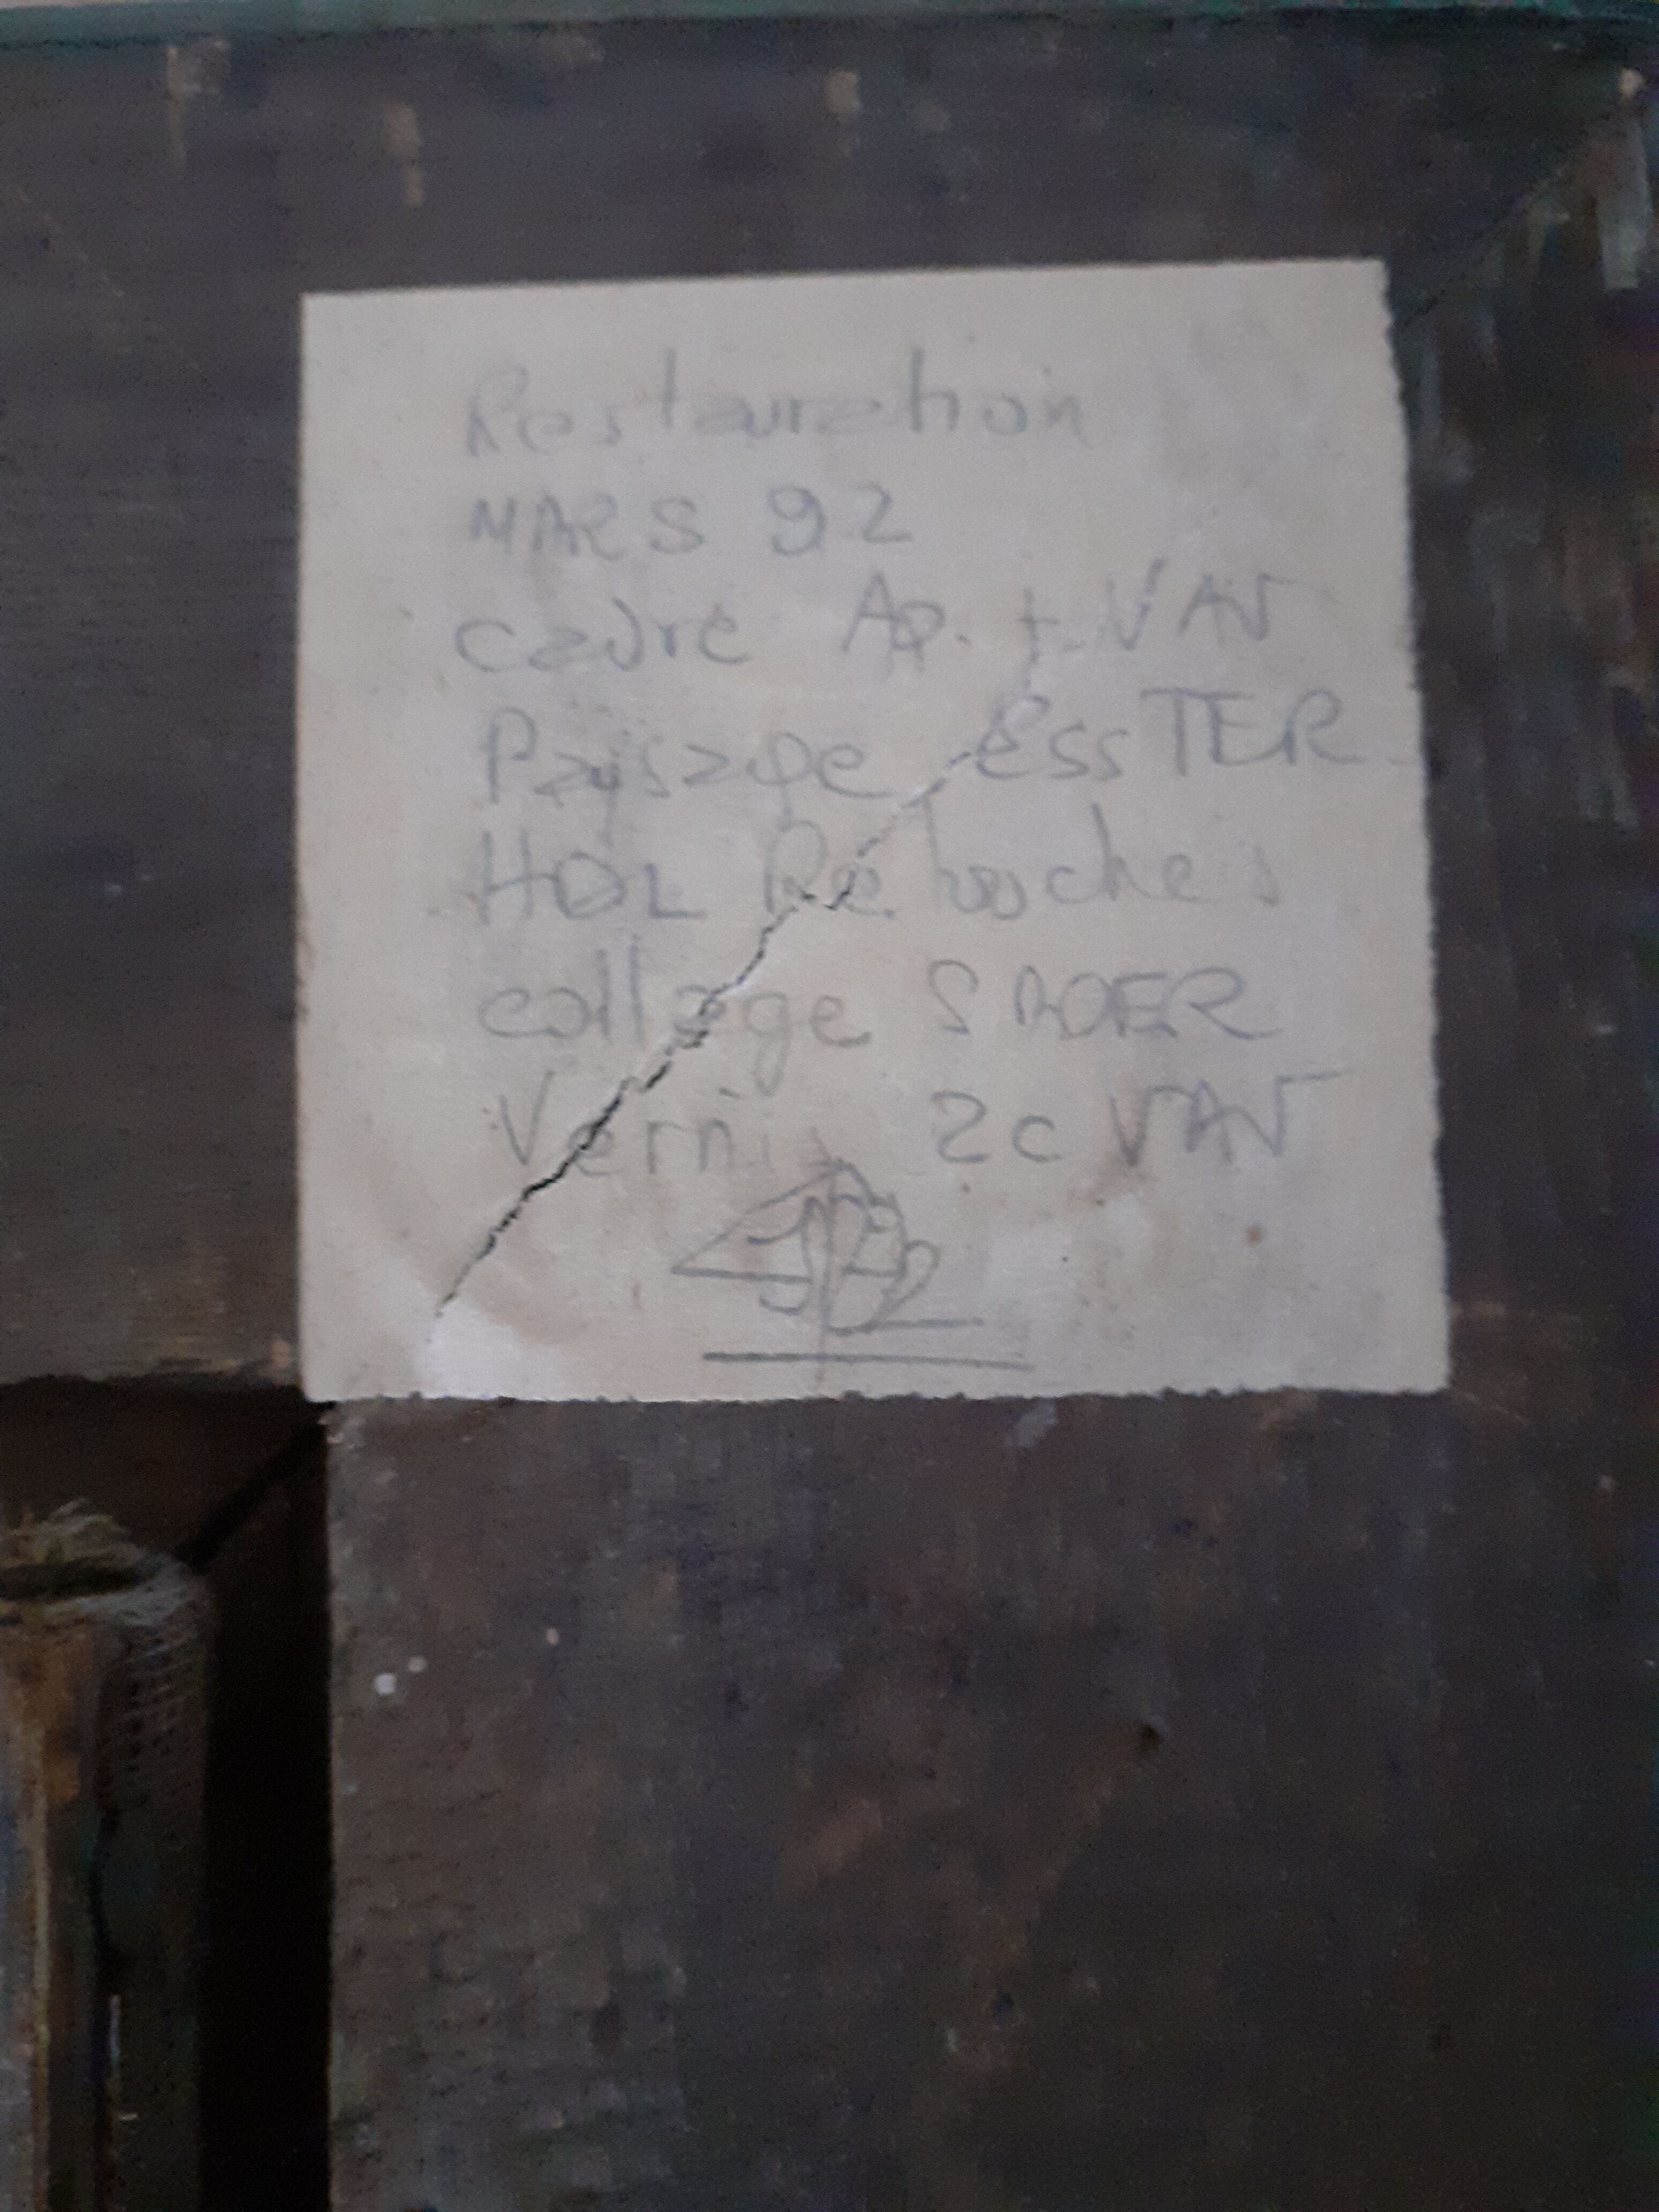 Restauration
MARS 92
cadre Ap. + VAV
Paysage essTER.
HOL Retouches
collage SADER
Vernis 2c VAV